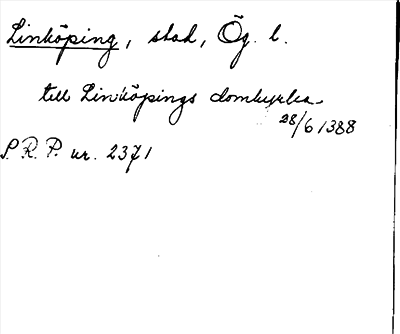 Linköping, stad, Ög. l.
till Linköpings domkyrka
28/6 1388
S. R. P. nr. 2371